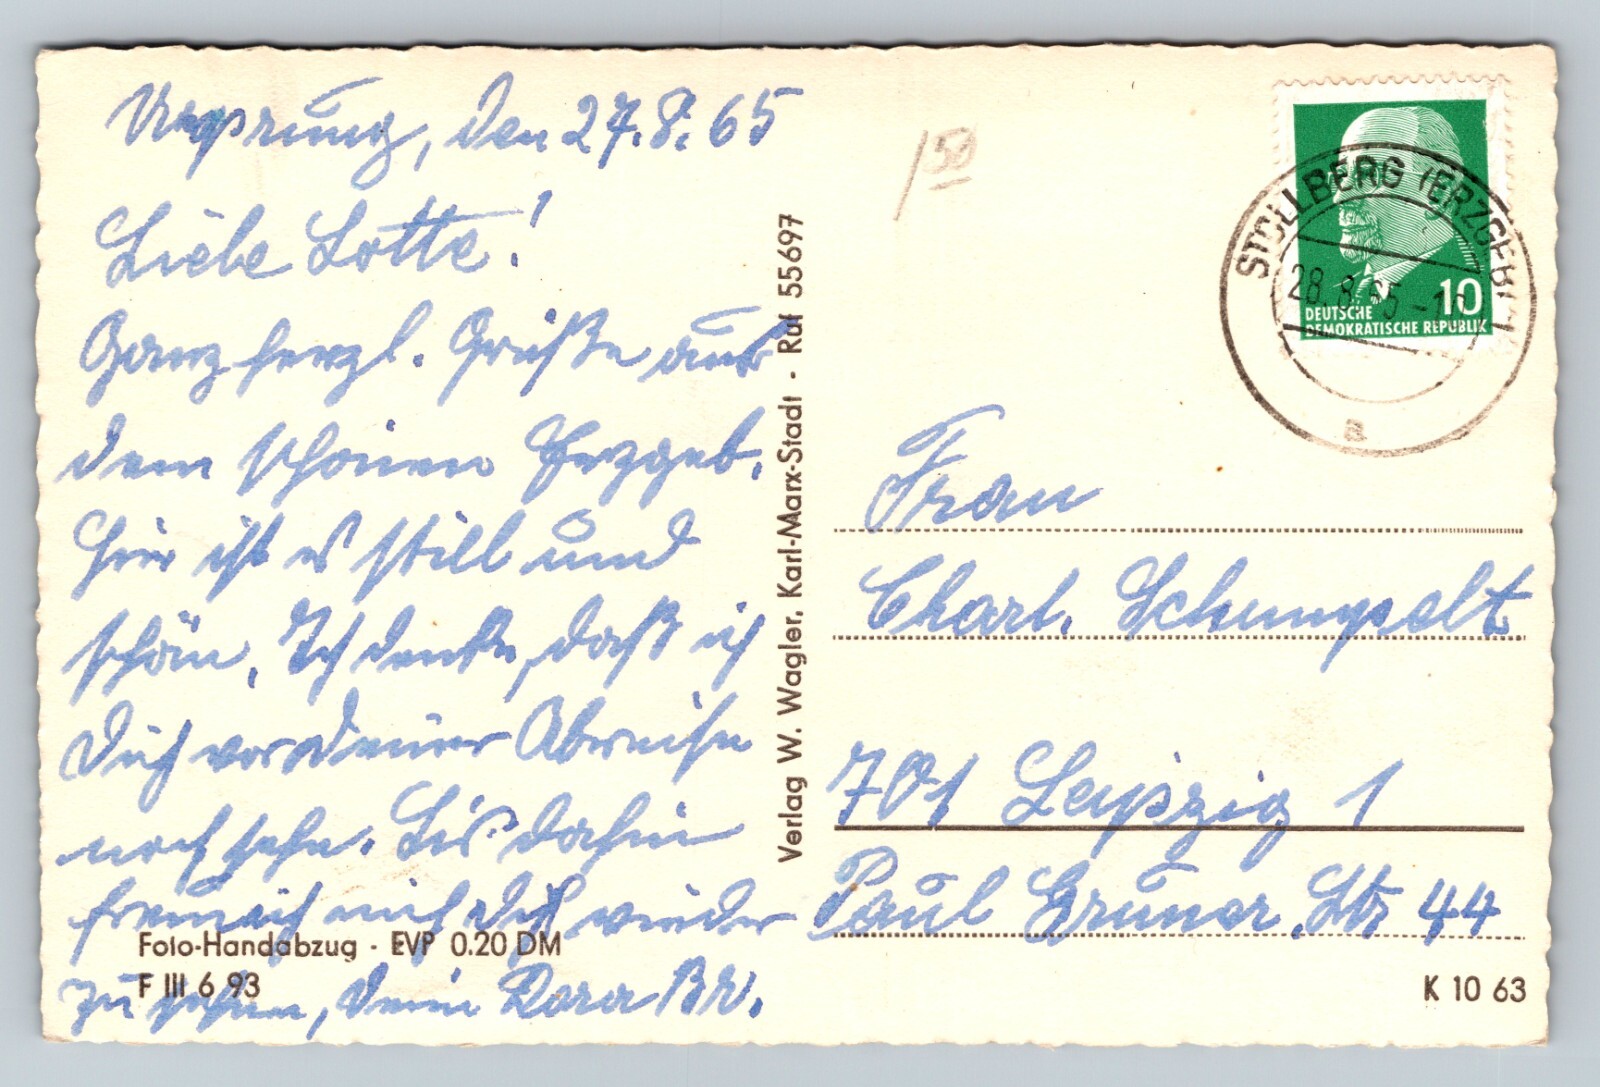 Ursprung, den 27.8.65
Liebe Lotte!
Ganz herzl. Grüße aus
dem schönen Erzgeb.
Hier ist es still und
schön. Ich denke, daß ich
Dich vor Deiner Abreise
noch sehe. Bis dahin
freu ich mich Dich wieder
zu sehen, Deine Dora Br.
Foto-Handabzug · EVP 0.20 DM
F III 6 93
Verlag W. Wagler, Karl-Marx-Stadt · Ruf 55697
1 50
STOLLBERG (ERZGEB)
28.8.65-1
a
10
DEUTSCHE
DEMOKRATISCHE REPUBLIK
Frau
Charl.
701 Leipzig 1
Paul Gruner Str 44
K 10 63